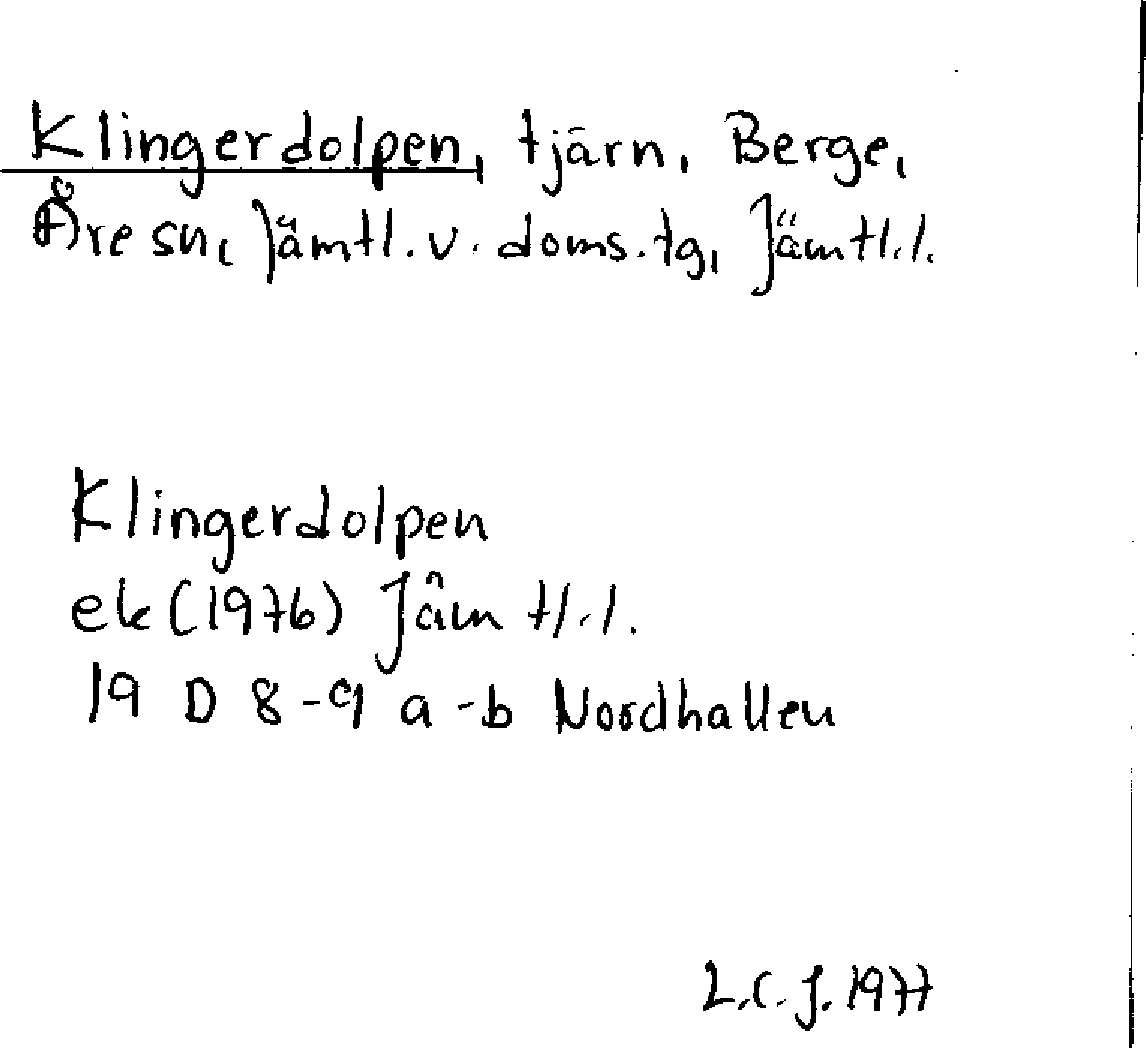 Klingerdolpen, tjärn, Berge,
Åre sn, Jämtl. v. doms. tg, Jämtl. l.
Klingerdolpen
ek (1976) Jämtl. l.
19 D 8-9 a-b Nordhallen
L.C.J. 1977